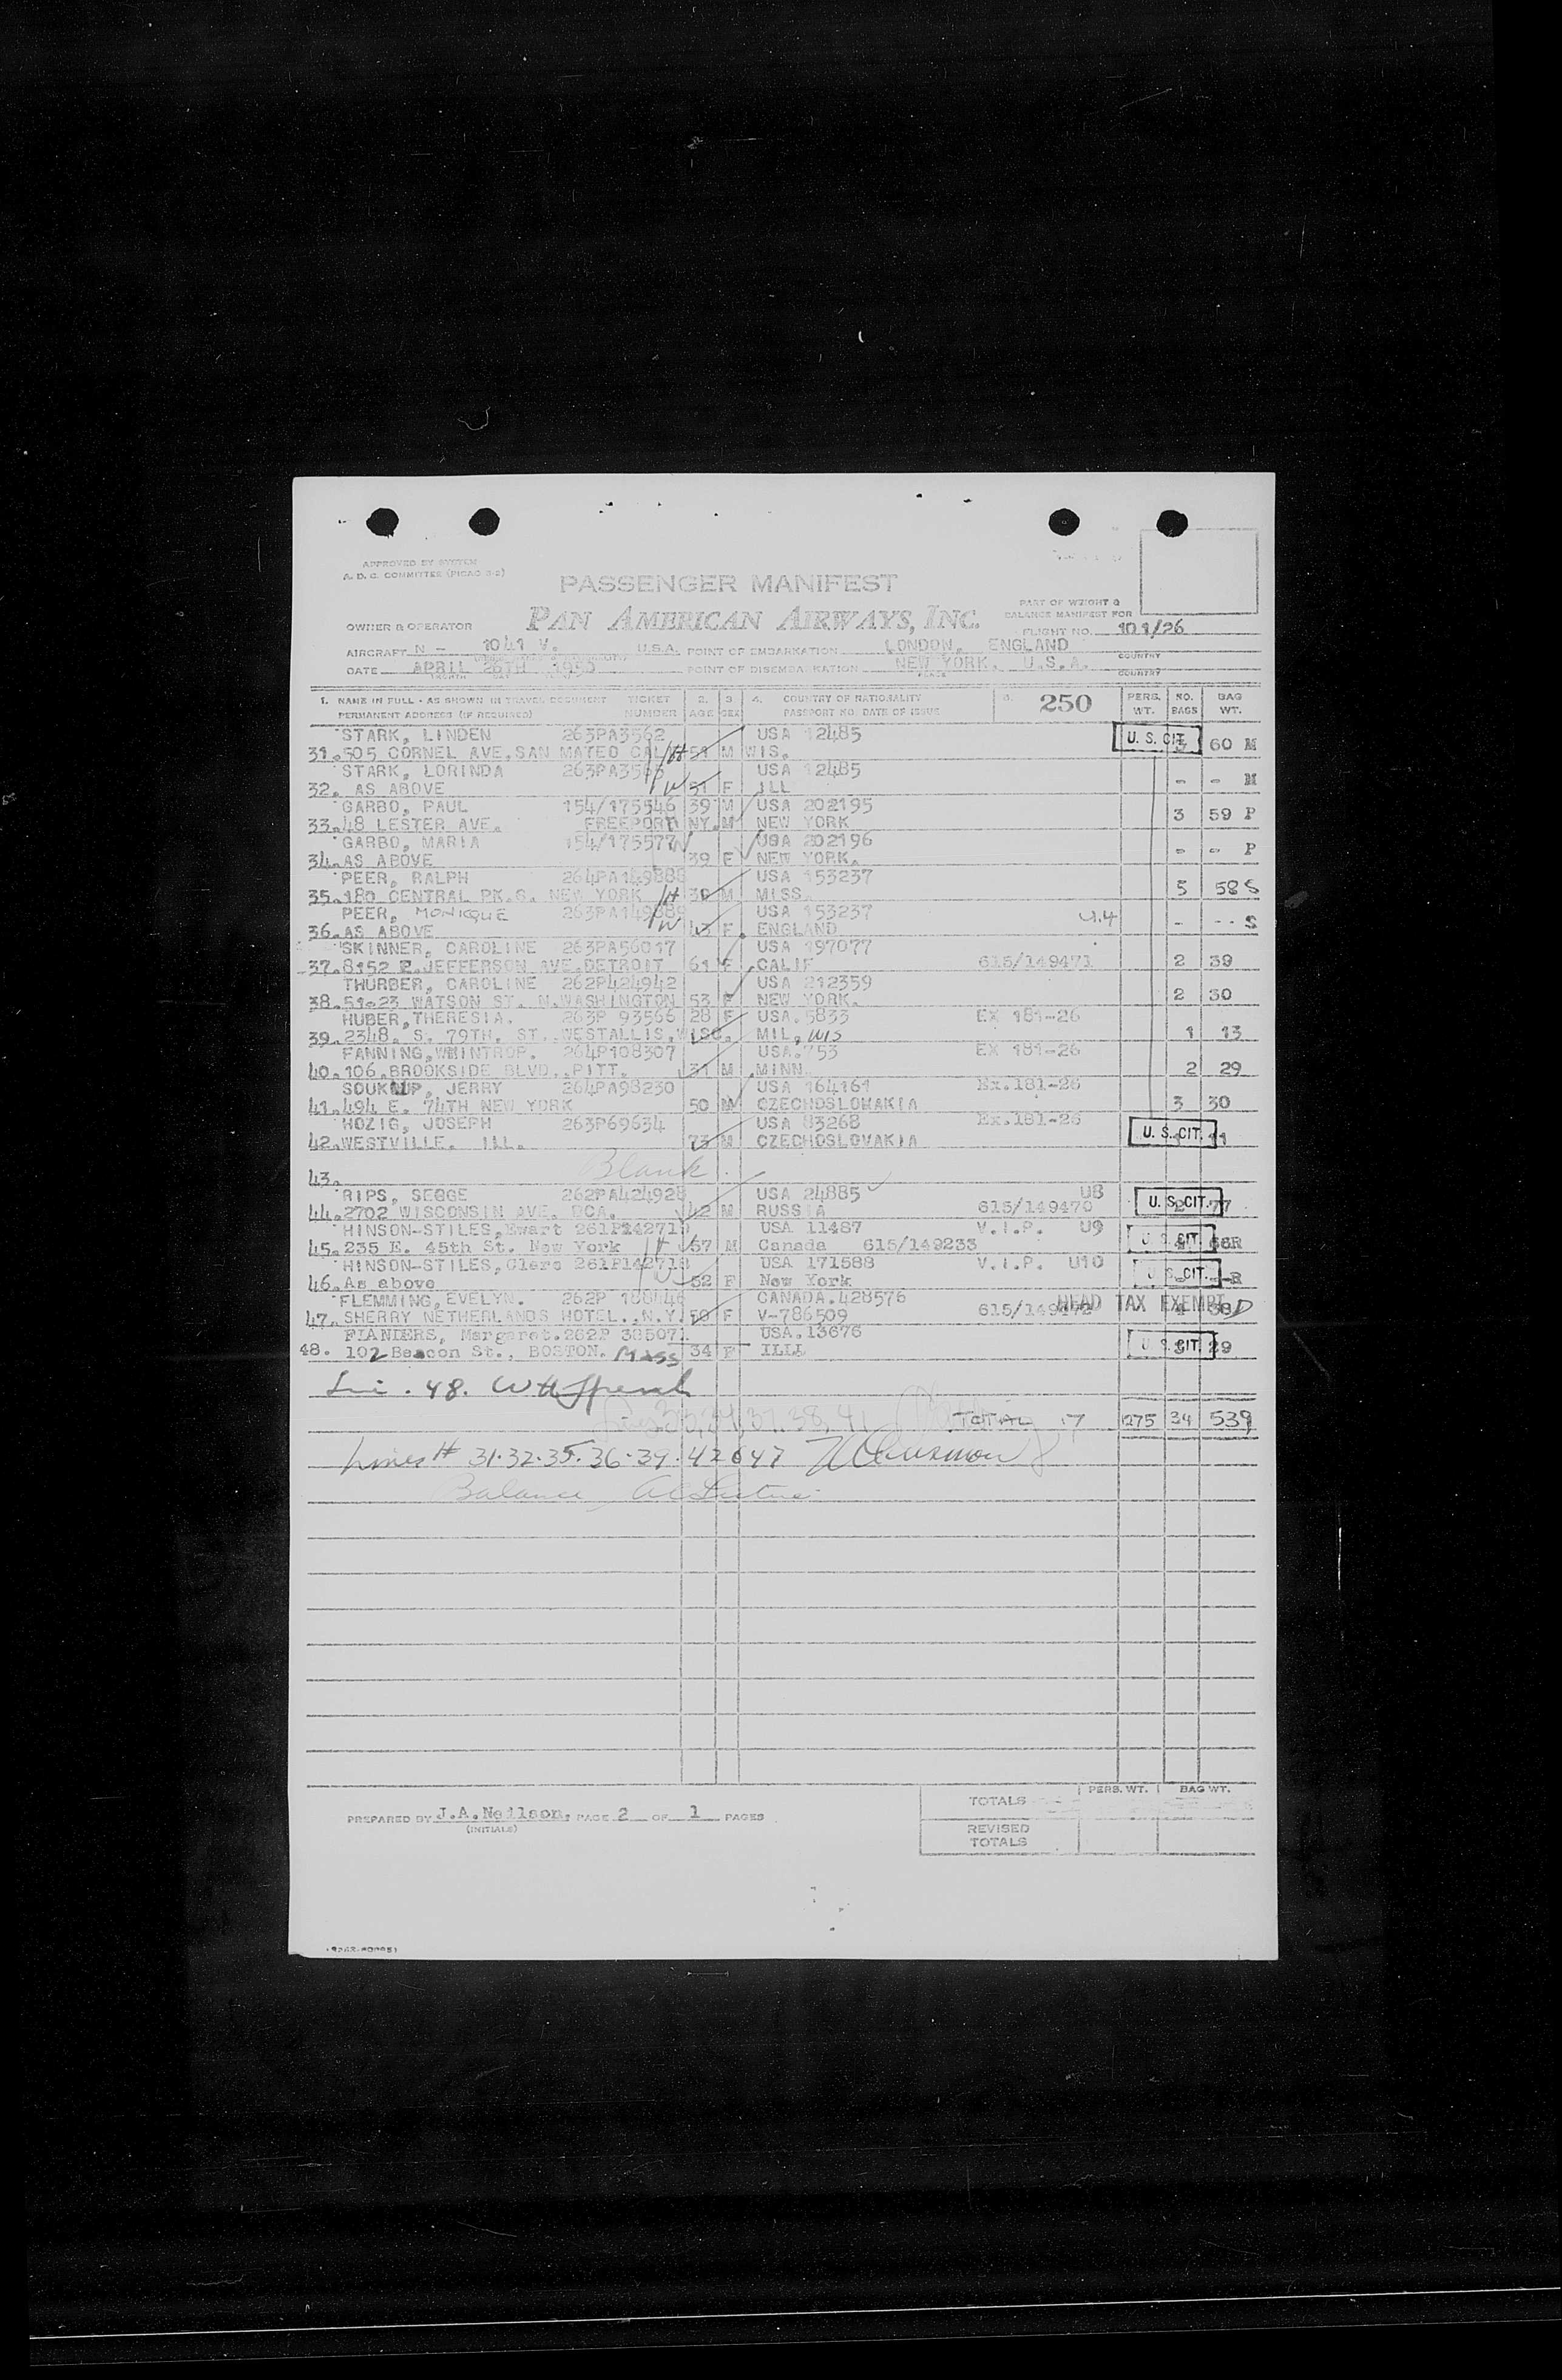 APPROVED BY SYSTEM
A. D. C. COMMITTEE (PICAO 3-2)
PASSENGER MANIFEST
PAN AMERICAN AIRWAYS, INC.
PART OF WEIGHT &
BALANCE MANIFEST FOR
OWNER & OPERATOR
FLIGHT NO. 101/26
AIRCRAFT N - 1041 V. U.S.A. POINT OF EMBARKATION LONDON, ENGLAND
COUNTRY
DATE APRIL 26TH 1950 POINT OF DISEMBARKATION NEW YORK, U.S.A.
MONTH DAY PLACE COUNTRY
1. NAME IN FULL - AS SHOWN IN TRAVEL DOCUMENT TICKET 2. 3 4. COUNTRY OF NATIONALITY 250 PERS. NO. BAG
PERMANENT ADDRESS (IF REQUIRED) NUMBER AGE SEX PASSPORT NO. DATE OF ISSUE WT. BAGS WT.
STARK, LINDEN 263PA3562 USA 12485 U. S. CIT.
31. 505 CORNEL AVE. SAN MATEO CAL H 51 M WIS. 60 M
STARK, LORINDA USA 12485
32. AS ABOVE W 51 F ILL - - M
GARBO, PAUL 154/175546 39 M USA 202195
33. 48 LESTER AVE. FREEPORT NY. M NEW YORK 3 59 P
GARBO, MARIA 154/175577 W USA 202196
34. AS ABOVE 39 F NEW YORK. - - P
PEER, RALPH USA 153237
35. 180 CENTRAL PK. S. NEW YORK H M MISS. 5 58 S
PEER, MONIQUE USA 153237 U.4
36. AS ABOVE W F ENGLAND - -- S
SKINNER, CAROLINE 263PA56017 USA 197077
37. 8152 E. JEFFERSON AVE. DETROIT 61 F CALIF 615/149471 2 39
THURBER, CAROLINE 262P424942 USA 212359
38. 51023 WATSON ST. N. WASHINGTON 53 F NEW YORK. 2 30
HUBER, THERESIA. 263P 93566 28 F USA. 5833 EX 181-26
39. 2348. S. 79TH. ST. WESTALLIS, WISC. MIL, WIS 1 13
FANNING, WHINTROP. 264P108307 USA. 753 EX 181-26
40. 106. BROOKSIDE BLVD., PITT. 31 M MINN. 2 29
SOUKUP, JERRY 264PA98230 USA 164161 Ex. 181-26
41. 494 E. 74TH NEW YORK 50 M CZECHOSLOWAKIA 3 30
HOZIG, JOSEPH 263P69634 USA 83268 Ex. 181-26
42. WESTVILLE. ILL. 73 M CZECHOSLOVAKIA U. S. CIT. 11
43. Blank
RIPS, SERGE 262PA424928 USA 24885 U8
44. 2702 WISCONSIN AVE. DCA. 42 M RUSSIA 615/149470 U. S. CIT. 77
HINSON-STILES, Ewart USA 11487 V.I.P. U9
45. 235 E. 45th St. New York H 57 M Canada 615/149233 U. S. CIT. 68R
HINSON-STILES, Clare 261P142718 USA 171588 V.I.P. U10
46. As above W 52 F New York U. S. CIT. -R
FLEMMING, EVELYN. 262P CANADA. 428576
47. SHERRY NETHERLANDS HOTEL., N.Y. 50 F V-786509 615/149472 HEAD TAX EXEMPT D
FLANDERS, Margaret. 262P 385071 USA. 13676
48. 102 Beacon St., BOSTON. MASS 34 F ILLL U. S. CIT. 29
48.
33, 34, 37, 38, 41 TOTAL 17 1275 34 539
Lines # 31-32-35-36-39-42 & 47
Balance
PREPARED BY J.A. Neilson. PAGE 2 OF 1 PAGES
(INITIALS)
PERS. WT. BAG WT.
TOTALS
REVISED
TOTALS